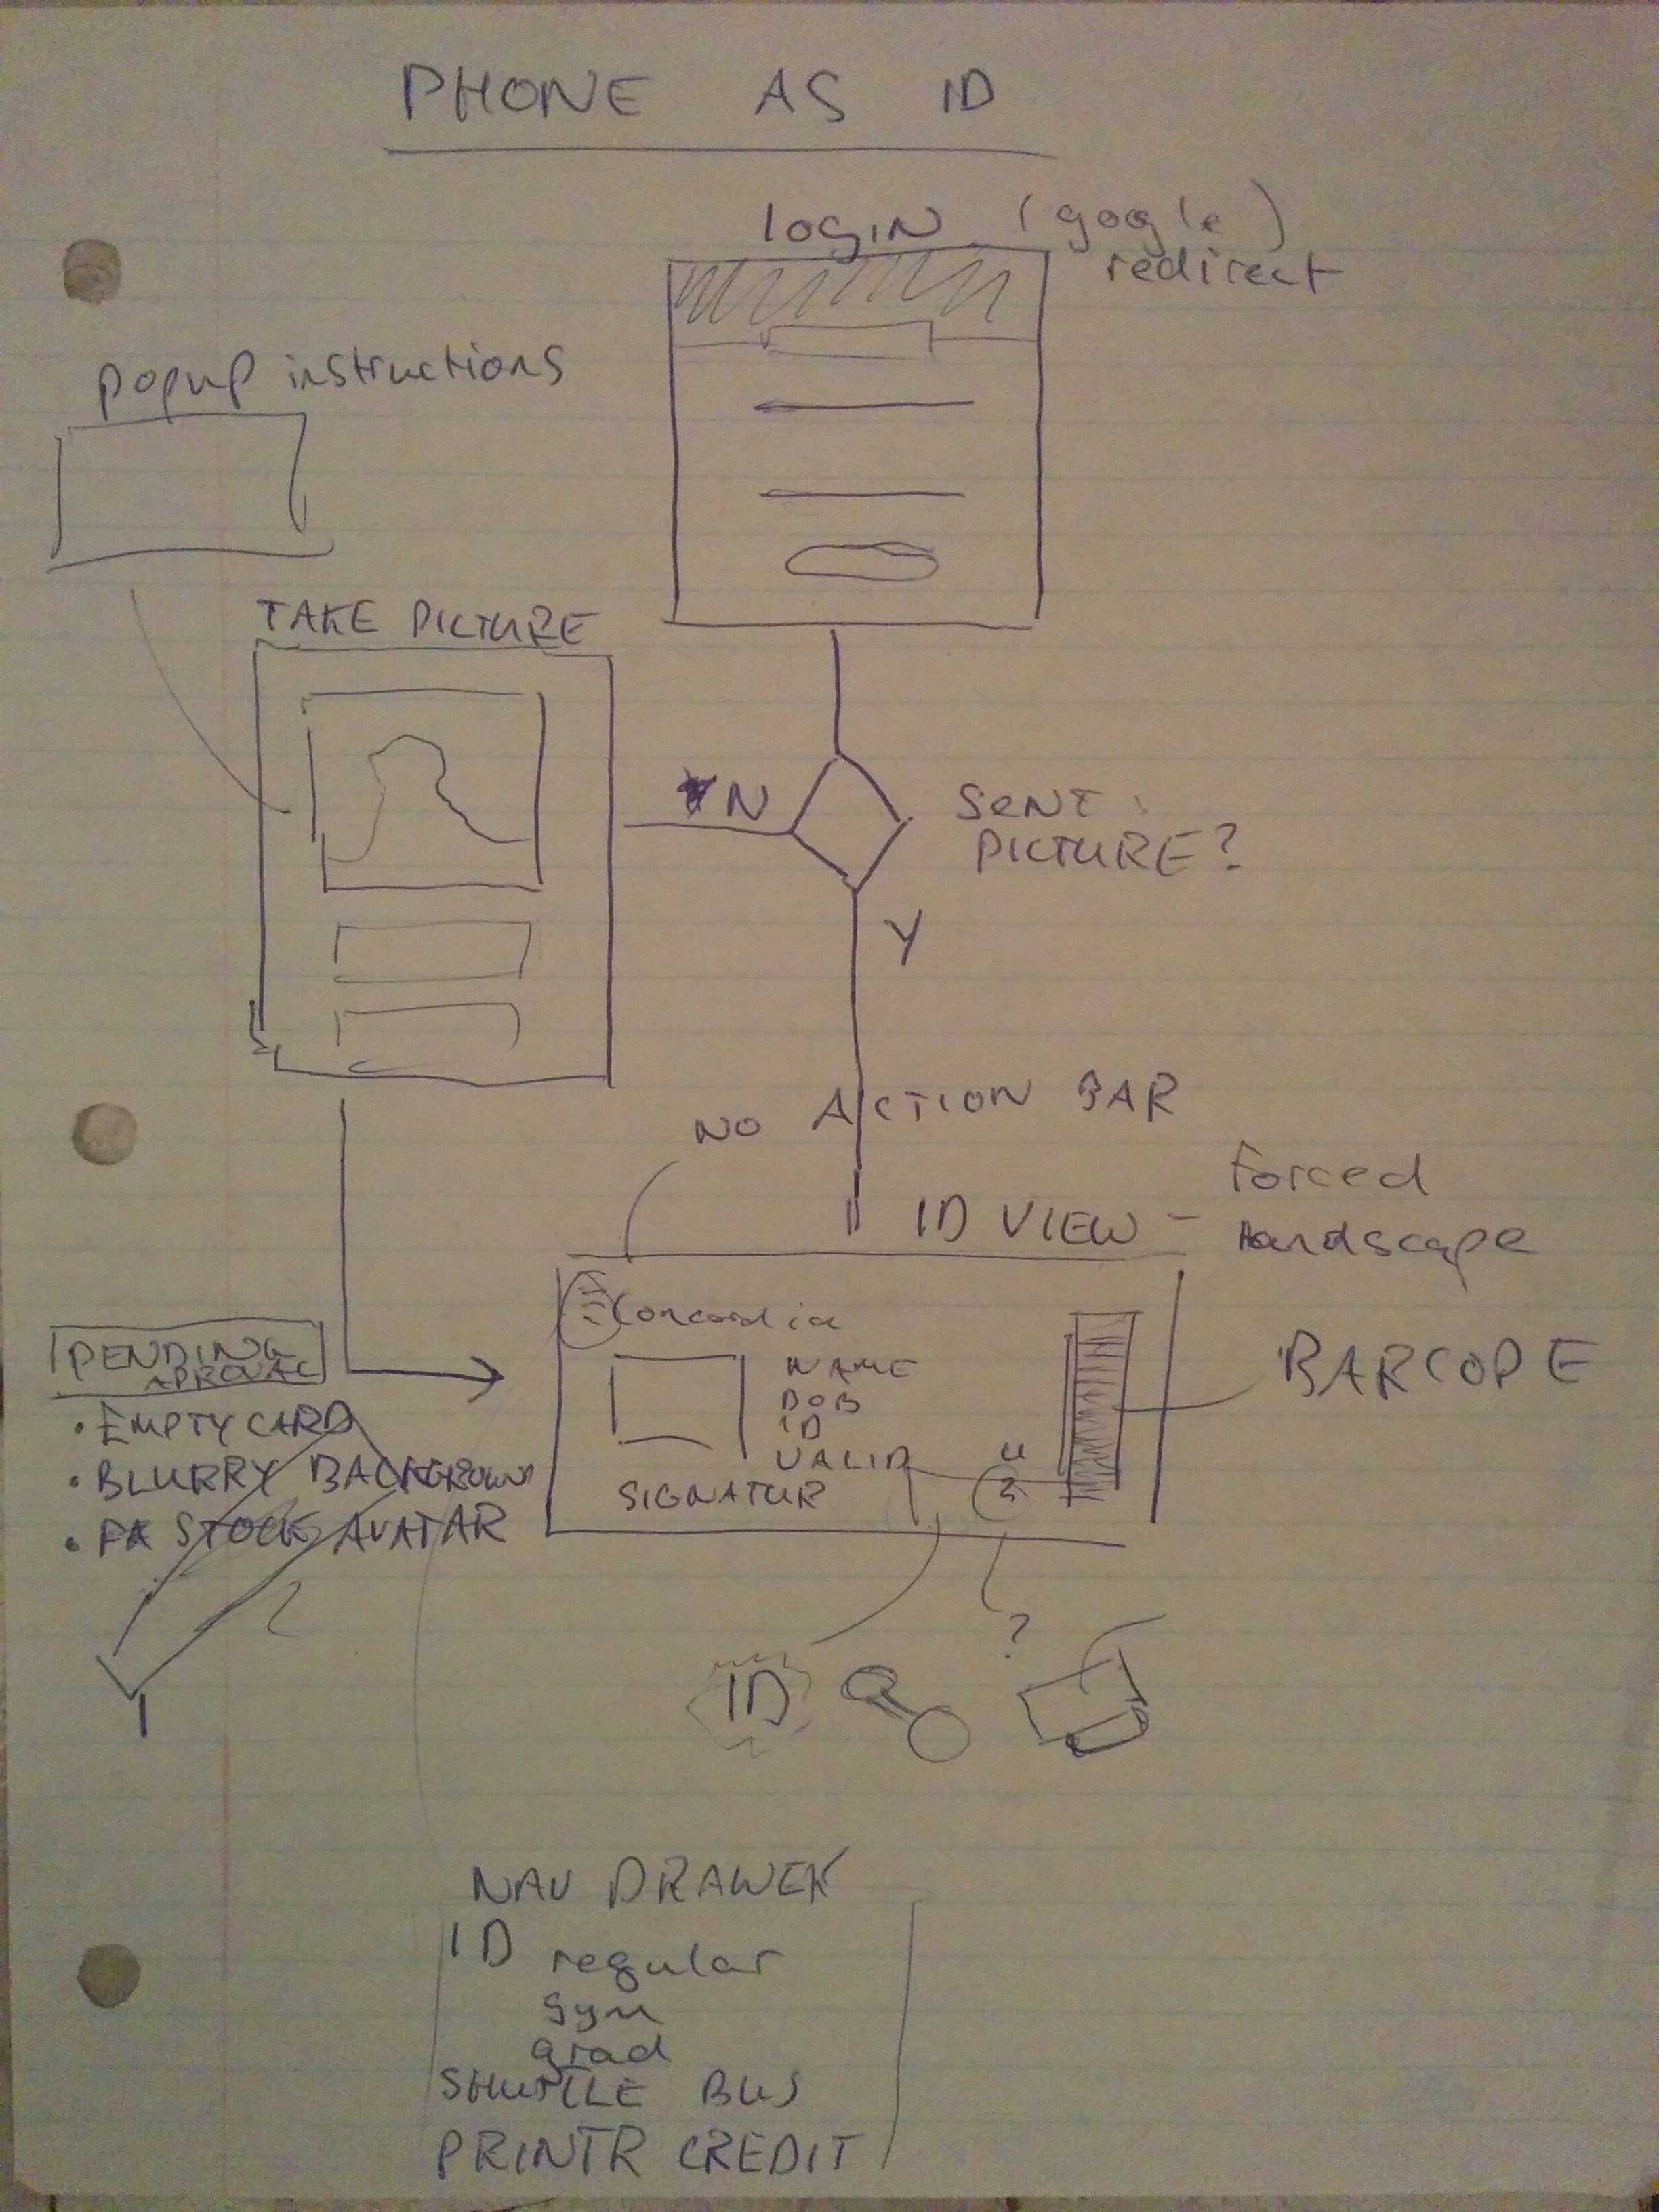 PHONE AS ID
LOGIN (google)
redirect
popup instructions
TAKE PICTURE
N
SENT
PICTURE?
Y
NO ACTION BAR
ID VIEW - Forced
Landscape
Concordia
NAME
DOB
ID
VALID
SIGNATUR
BARCODE
PENDING
APROVAL
• EMPTY CARD
• BLURRY BACKGROUND
• FA STOCK AVATAR
?
ID
NAV DRAWER
ID
regular
gym
grad
SHUTTLE BUS
PRINTR CREDIT